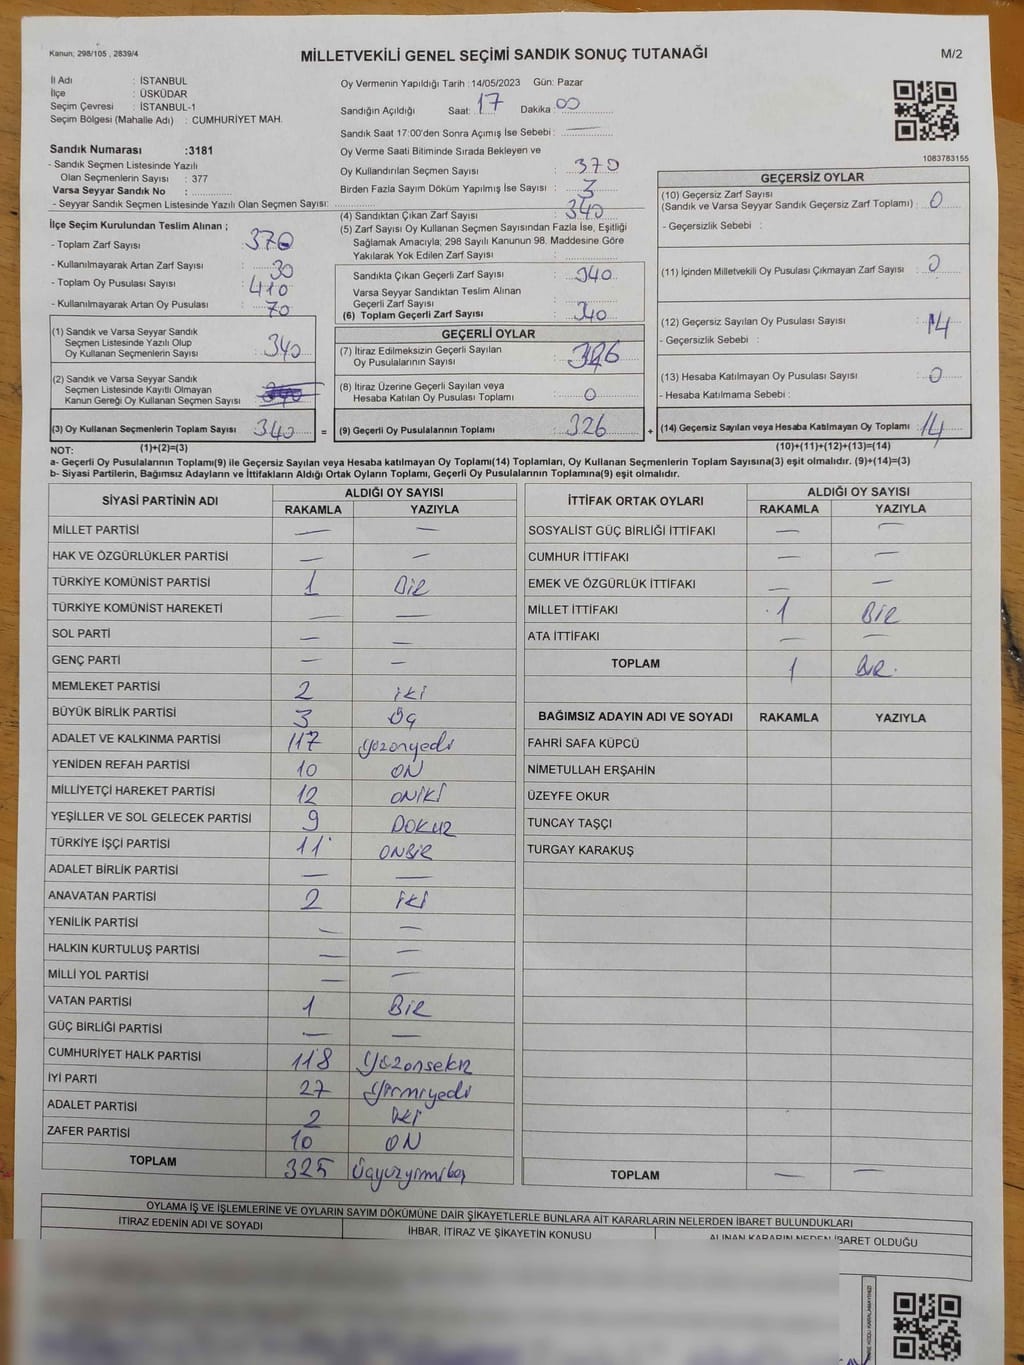 Kanun; 298/105 , 2839/4
MİLLETVEKİLİ GENEL SEÇİMİ SANDIK SONUÇ TUTANAĞI
M/2
İl Adı : İSTANBUL
İlçe : ÜSKÜDAR
Seçim Çevresi : İSTANBUL-1
Seçim Bölgesi (Mahalle Adı) : CUMHURİYET MAH.
Oy Vermenin Yapıldığı Tarih : 14/05/2023 Gün: Pazar
Sandığın Açıldığı Saat: 17 Dakika : 00
Sandık Saat 17:00'den Sonra Açımış İse Sebebi : —
1083783155
Sandık Numarası :3181
- Sandık Seçmen Listesinde Yazılı
Olan Seçmenlerin Sayısı : 377
Varsa Seyyar Sandık No :
- Seyyar Sandık Seçmen Listesinde Yazılı Olan Seçmen Sayısı:
Oy Verme Saati Bitiminde Sırada Bekleyen ve
Oy Kullandırılan Seçmen Sayısı : 370
Birden Fazla Sayım Döküm Yapılmış İse Sayısı : 3
İlçe Seçim Kurulundan Teslim Alınan ;
- Toplam Zarf Sayısı : 370
- Kullanılmayarak Artan Zarf Sayısı : 30
- Toplam Oy Pusulası Sayısı : 410
- Kullanılmayarak Artan Oy Pusulası : 70
(1) Sandık ve Varsa Seyyar Sandık
Seçmen Listesinde Yazılı Olup
Oy Kullanan Seçmenlerin Sayısı : 340
(2) Sandık ve Varsa Seyyar Sandık
Seçmen Listesinde Kayıtlı Olmayan
Kanun Gereği Oy Kullanan Seçmen Sayısı :
(3) Oy Kullanan Seçmenlerin Toplam Sayısı : 340 =
(1)+(2)=(3)
(4) Sandıktan Çıkan Zarf Sayısı : 340
(5) Zarf Sayısı Oy Kullanan Seçmen Sayısından Fazla İse, Eşitliği
Sağlamak Amacıyla; 298 Sayılı Kanunun 98. Maddesine Göre
Yakılarak Yok Edilen Zarf Sayısı :
Sandıkta Çıkan Geçerli Zarf Sayısı : 340
Varsa Seyyar Sandıktan Teslim Alınan
Geçerli Zarf Sayısı :
(6) Toplam Geçerli Zarf Sayısı : 340
GEÇERLİ OYLAR
(7) İtiraz Edilmeksizin Geçerli Sayılan
Oy Pusulalarının Sayısı : 326
(8) İtiraz Üzerine Geçerli Sayılan veya
Hesaba Katılan Oy Pusulası Toplamı : 0
(9) Geçerli Oy Pusulalarının Toplamı : 326 +
GEÇERSİZ OYLAR
(10) Geçersiz Zarf Sayısı
(Sandık ve Varsa Seyyar Sandık Geçersiz Zarf Toplamı) : 0
- Geçersizlik Sebebi :
(11) İçinden Milletvekili Oy Pusulası Çıkmayan Zarf Sayısı : 0
(12) Geçersiz Sayılan Oy Pusulası Sayısı : 14
- Geçersizlik Sebebi :
(13) Hesaba Katılmayan Oy Pusulası Sayısı : 0
- Hesaba Katılmama Sebebi :
(14) Geçersiz Sayılan veya Hesaba Katılmayan Oy Toplamı : 14
(10)+(11)+(12)+(13)=(14)
NOT:
a- Geçerli Oy Pusulalarının Toplamı(9) ile Geçersiz Sayılan veya Hesaba katılmayan Oy Toplamı(14) Toplamları, Oy Kullanan Seçmenlerin Toplam Sayısına(3) eşit olmalıdır. (9)+(14)=(3)
b- Siyasi Partilerin, Bağımsız Adayların ve İttifakların Aldığı Ortak Oyların Toplamı, Geçerli Oy Pusulalarının Toplamına(9) eşit olmalıdır.
SİYASİ PARTİNİN ADI ALDIĞI OY SAYISI
RAKAMLA YAZIYLA
MİLLET PARTİSİ — —
HAK VE ÖZGÜRLÜKLER PARTİSİ — —
TÜRKİYE KOMÜNİST PARTİSİ 1 BİR
TÜRKİYE KOMÜNİST HAREKETİ — —
SOL PARTİ — —
GENÇ PARTİ — —
MEMLEKET PARTİSİ 2 iKi
BÜYÜK BİRLİK PARTİSİ 3 Üç
ADALET VE KALKINMA PARTİSİ 117 yüzonyedi
YENİDEN REFAH PARTİSİ 10 ON
MİLLİYETÇİ HAREKET PARTİSİ 12 ONİKİ
YEŞİLLER VE SOL GELECEK PARTİSİ 9 DOKUZ
TÜRKİYE İŞÇİ PARTİSİ 11 ONBİR
ADALET BİRLİK PARTİSİ — —
ANAVATAN PARTİSİ 2 iKi
YENİLİK PARTİSİ — —
HALKIN KURTULUŞ PARTİSİ — —
MİLLİ YOL PARTİSİ — —
VATAN PARTİSİ 1 BİR
GÜÇ BİRLİĞİ PARTİSİ — —
CUMHURİYET HALK PARTİSİ 118 yüzonsekiz
İYİ PARTİ 27 yirmiyedi
ADALET PARTİSİ 2 iki
ZAFER PARTİSİ 10 ON
TOPLAM 325 üçyüzyirmibeş
İTTİFAK ORTAK OYLARI ALDIĞI OY SAYISI
RAKAMLA YAZIYLA
SOSYALİST GÜÇ BİRLİĞİ İTTİFAKI — —
CUMHUR İTTİFAKI — —
EMEK VE ÖZGÜRLÜK İTTİFAKI — —
MİLLET İTTİFAKI 1 BİR
ATA İTTİFAKI — —
TOPLAM 1 BİR.
BAĞIMSIZ ADAYIN ADI VE SOYADI RAKAMLA YAZIYLA
FAHRİ SAFA KÜPCÜ
NİMETULLAH ERŞAHİN
ÜZEYFE OKUR
TUNCAY TAŞÇI
TURGAY KARAKUŞ
TOPLAM — —
OYLAMA İŞ VE İŞLEMLERİNE VE OYLARIN SAYIM DÖKÜMÜNE DAİR ŞİKAYETLERLE BUNLARA AİT KARARLARIN NELERDEN İBARET BULUNDUKLARI
İTİRAZ EDENİN ADI VE SOYADI
İHBAR, İTİRAZ VE ŞİKAYETİN KONUSU
ALINAN KARARIN NEDEN İBARET OLDUĞU